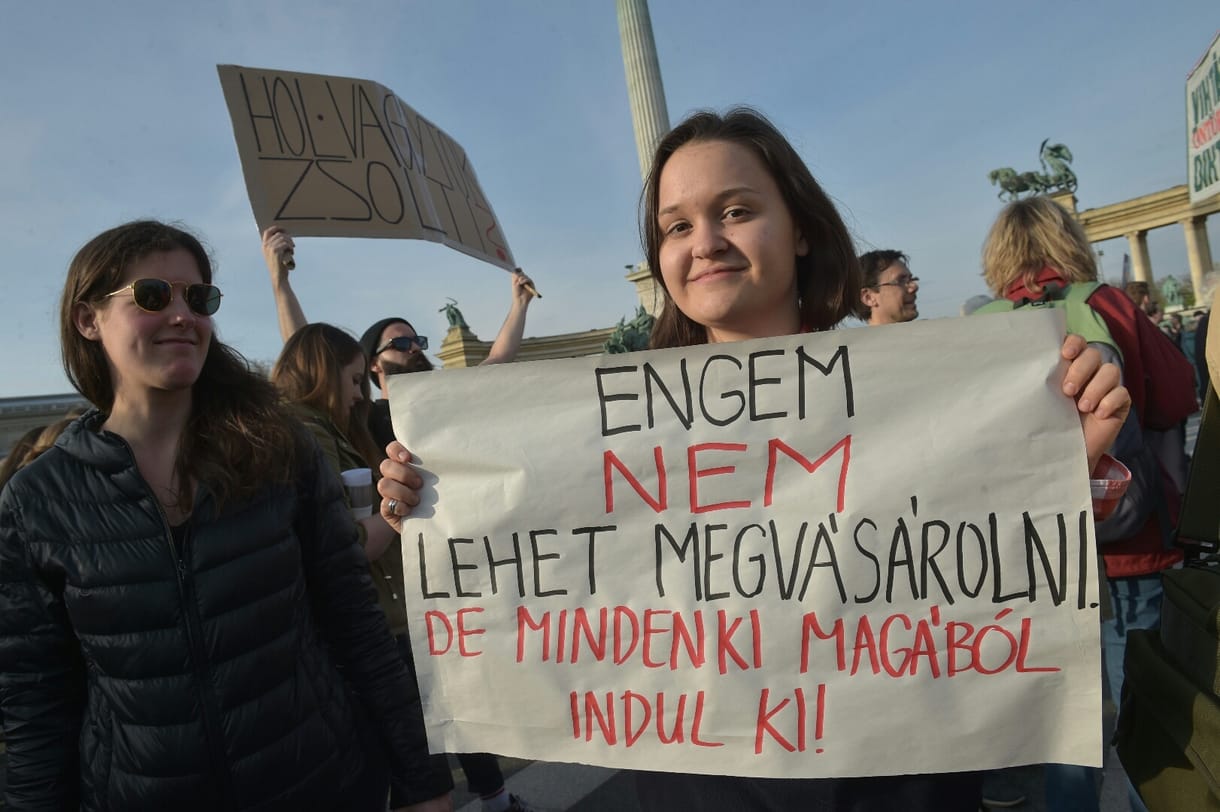 HOL VAGYTOK
ZSOLTI?
ENGEM
NEM
LEHET MEGVÁSÁROLNI.
DE MINDENKI MAGÁBÓL
INDUL KI!